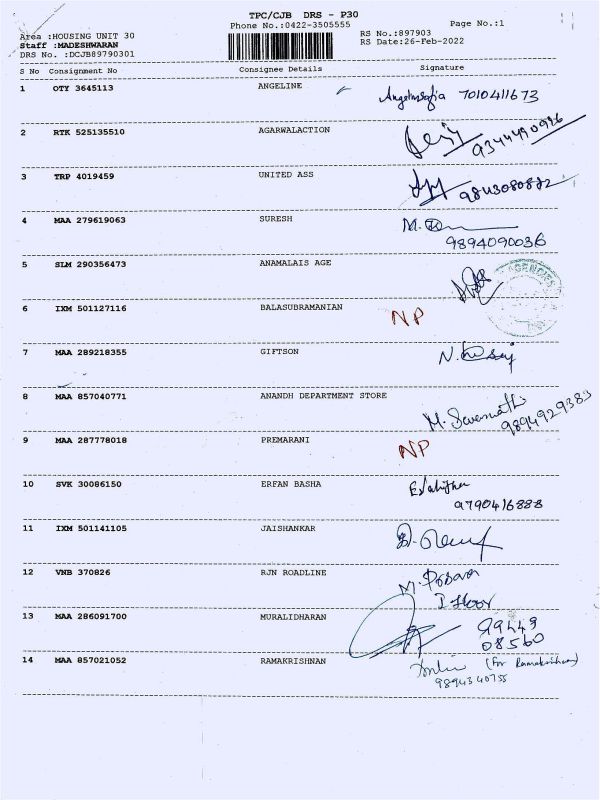 TPC/CJB DRS - P30
Phone No.:0422-3505555
Page No.:1
Area :HOUSING UNIT 30
RS No.:897903
Staff :MADESHWARAN
RS Date:26-Feb-2022
DRS No. :DCJB89790301
S No Consignment No Consignee Details Signature
1 OTY 3645113 ANGELINE
7010411673
2 RTK 525135510 AGARWALACTION
3 TRP 4019459 UNITED ASS
9843080882
4 MAA 279619063 SURESH
9894090036
5 SLM 290356473 ANAMALAIS AGE
AGENCIES
6 IXM 501127116 BALASUBRAMANIAN NP
7 MAA 289218355 GIFTSON
8 MAA 857040771 ANANDH DEPARTMENT STORE
9894929383
9 MAA 287778018 PREMARANI NP
10 SVK 30086150 ERFAN BASHA
9790416888
11 IXM 501141105 JAISHANKAR
12 VNB 370826 RJN ROADLINE
I Floor
13 MAA 286091700 MURALIDHARAN
99443
08560
14 MAA 857021052 RAMAKRISHNAN (For Ramakrishnan)
9894340755